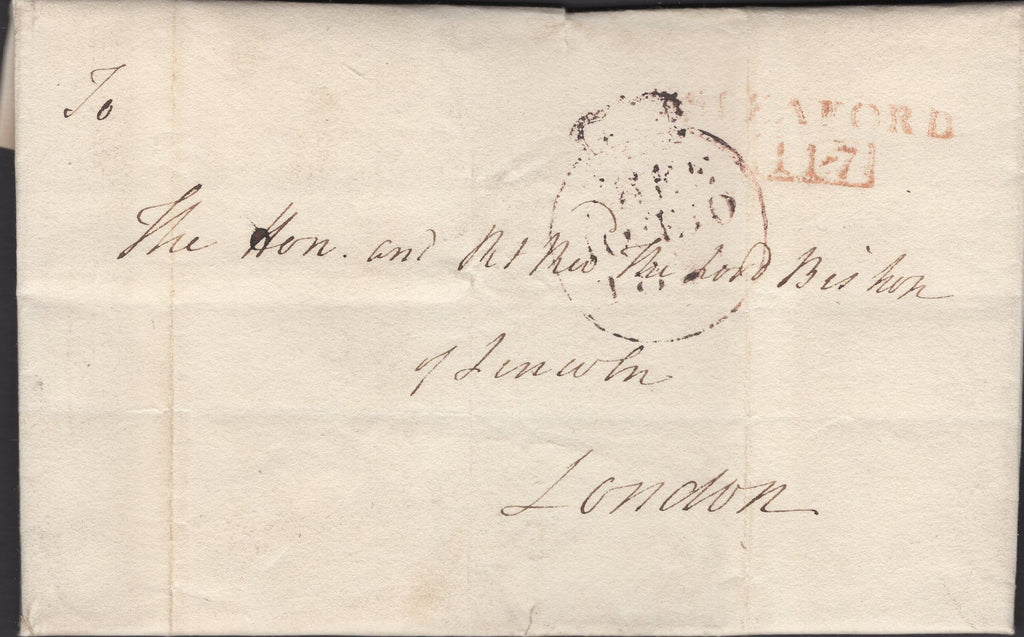 To
SLEAFORD
117
The Hon. and Rt Rev The Lord Bishop
of Lincoln
London